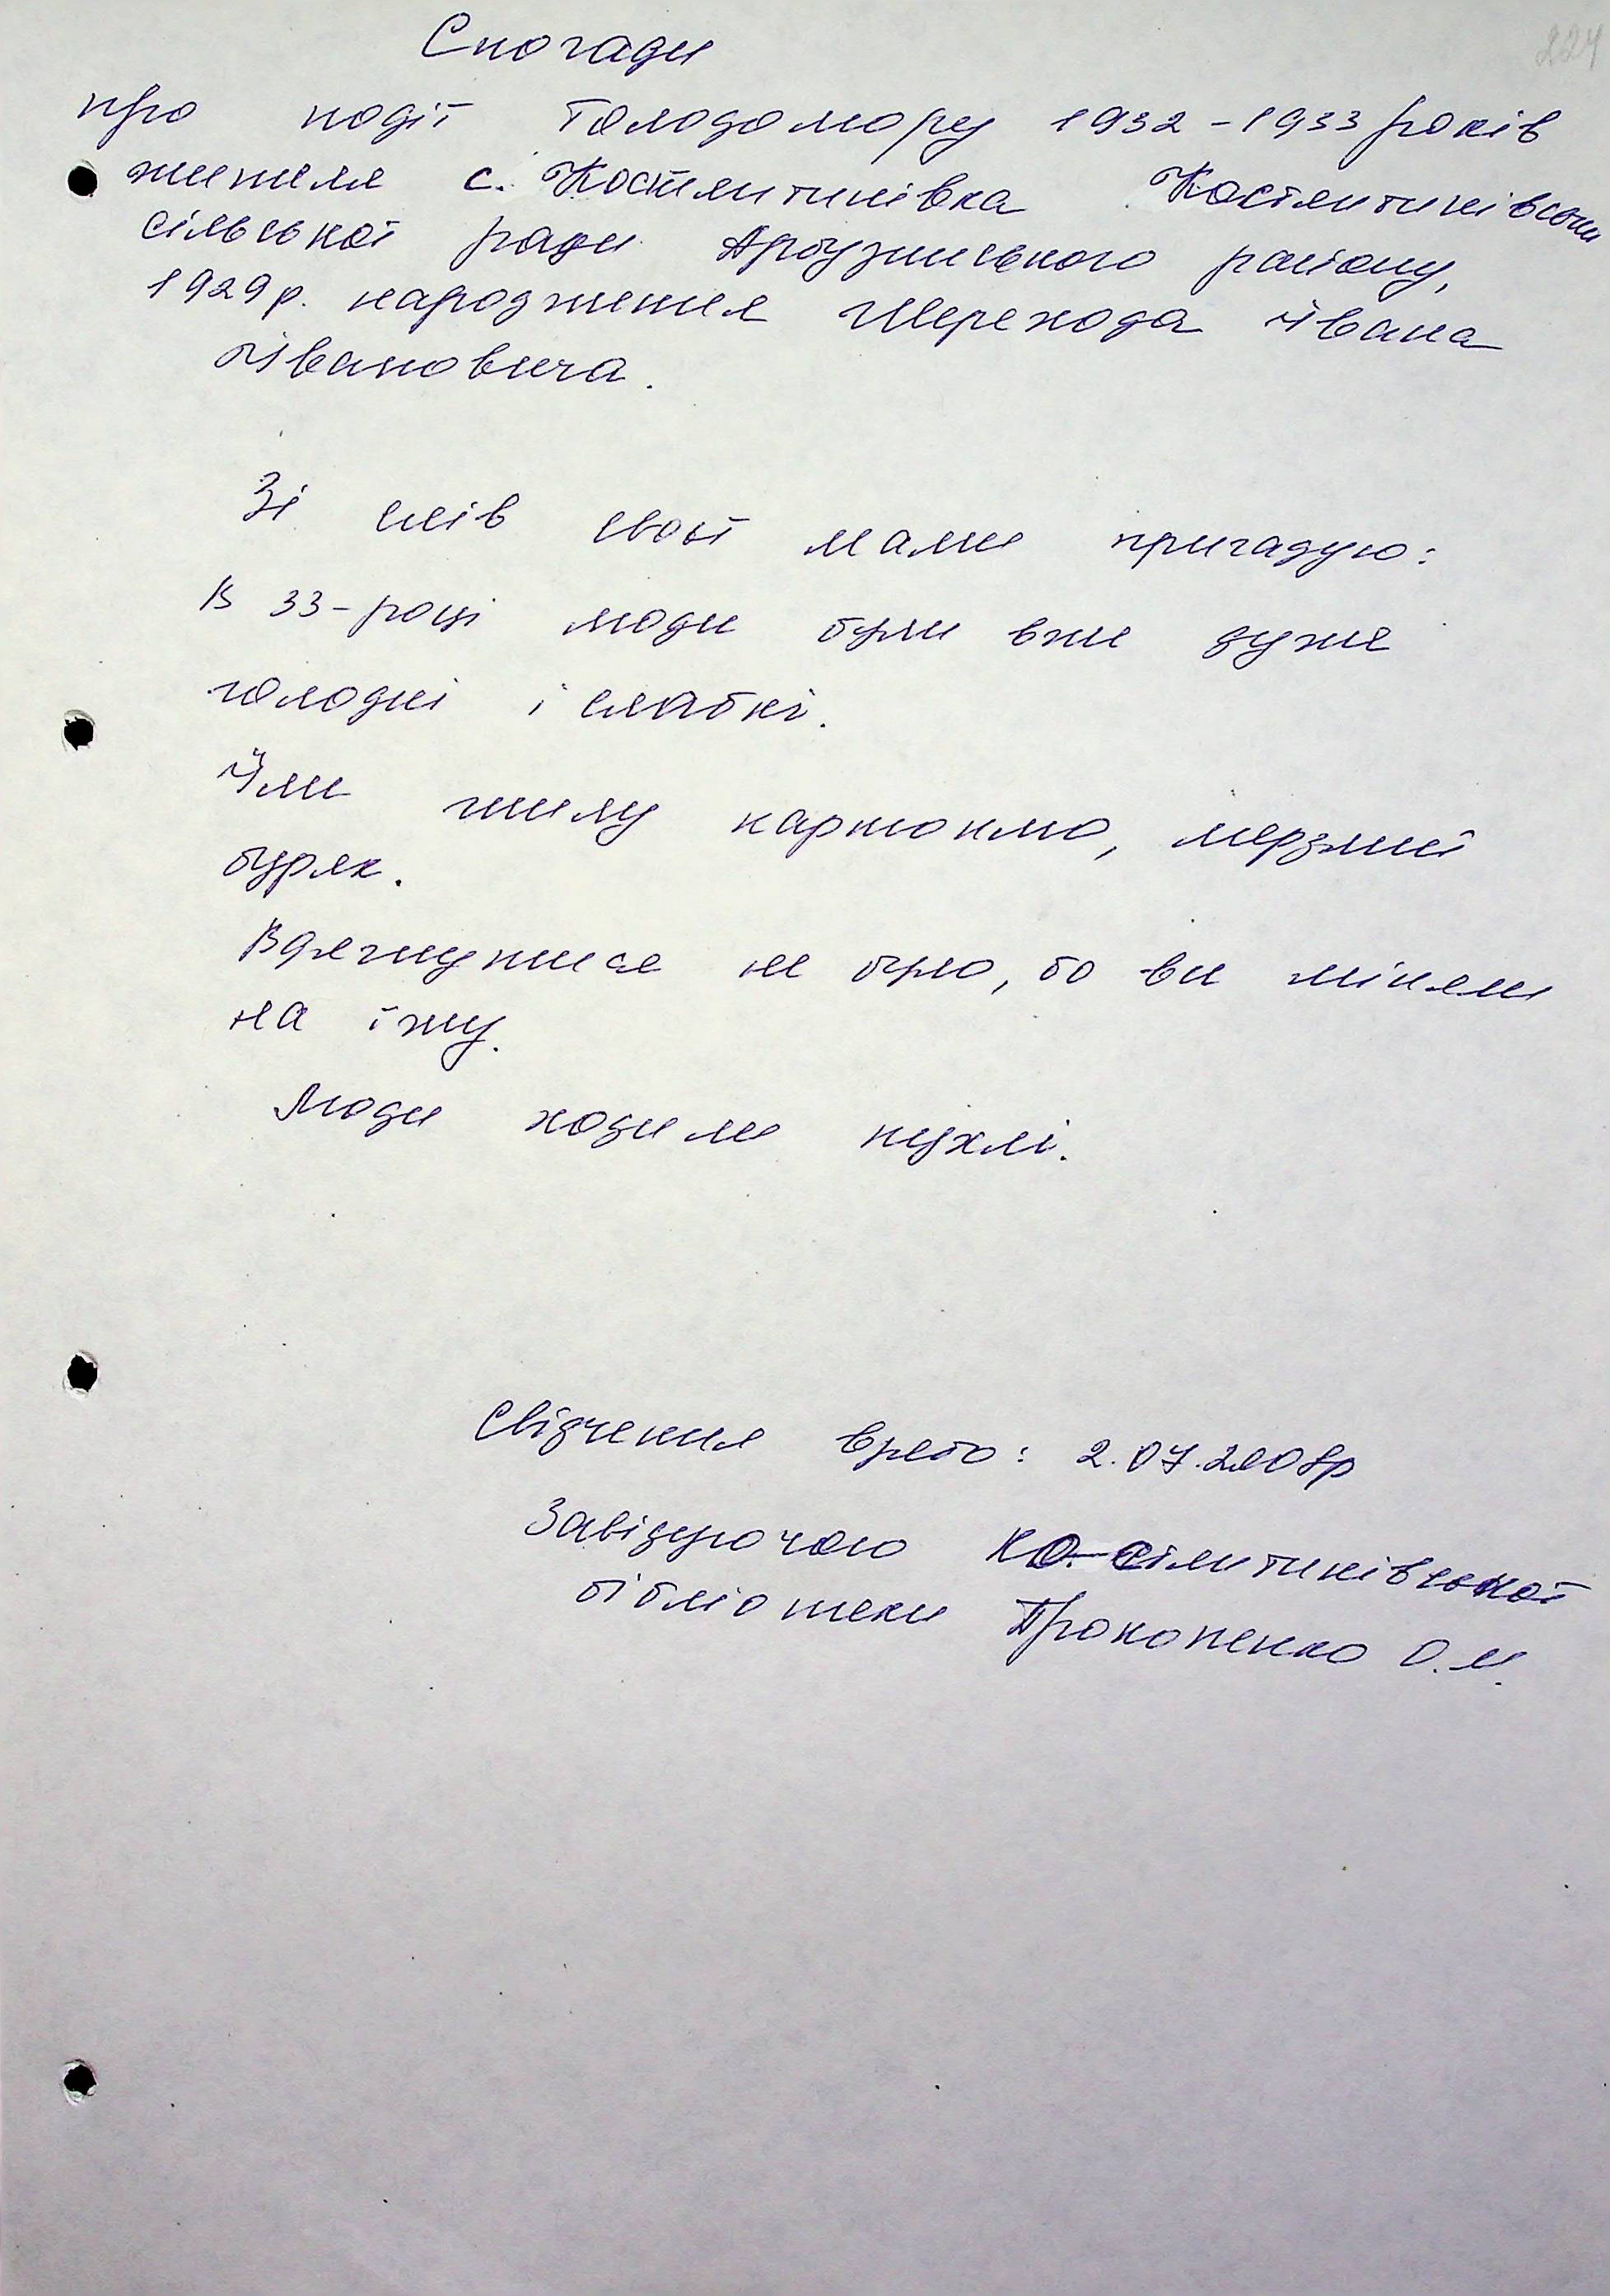 Спогади
про події Голодомору 1932-1933 років
жителя с. Костянтинівка Костянтинівської
сільської ради Арбузинського району,
1929 р. народження Шерехода Івана
Івановича.
Зі слів своєї мами пригадую:
В 33-році люди були вже дуже
голодні і слабкі.
Їли гнилу картоплю, мерзлий
буряк.
Вдягнутися не було, бо ви міняли
на їжу.
Люди ходили пухлі.
Свідчення взято: 2.07.2008р
Завідуючою Костянтинівської
бібліотеки Прокопенко О.М.
224